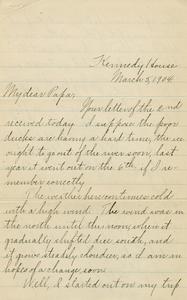 Kennedy House
March 5, 1904
My dear Papa,
Your letter of the 2nd
received today. I suppose the poor
ducks are having a hard time, the ice
ought to go out of the river soon, last
year it went out on the 6th if I re-
member correctly.
The weather here continues cold
with a high wind. The wind was in
the north until this noon, when it
gradually shifted due south, and
it grows steadily cloudier, so I am in
hopes of a change soon.
Well, I started out on my trip